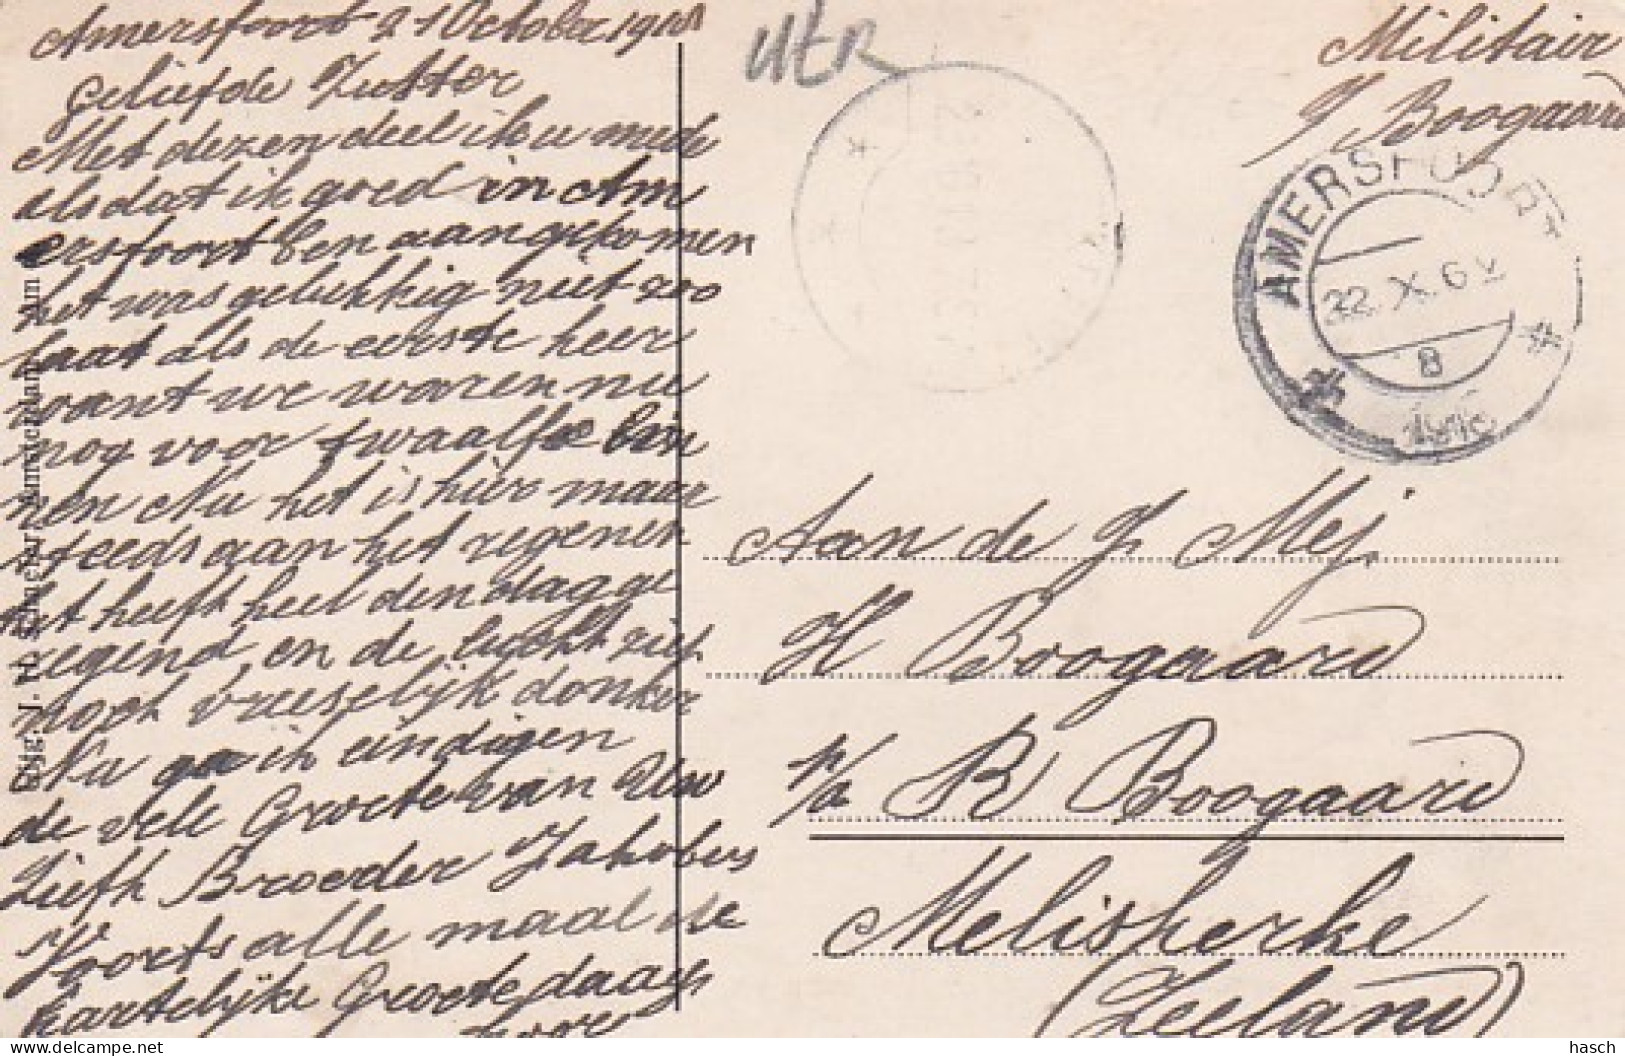 Amersfoort 21 October 1918
Geliefde Zuster
Met dezen deel ik u mede
als dat ik goed in Am
ersfoort ben aangekomen
het was gelukkig niet zoo
laat als de eerste keer
want we waren nu
nog voor twaalfe bin
nen Nu het is hier maar
steeds aan het regenen
het heeft heel den dag ge
regend en de lucht ziet
noch vreeselijk donker
Nu ga ik eindigen
de vele Groete van Uw
Liefh Broeder Jakobus
Voorts alle maal de
hartelijke Groete daags
voor
Uitg. J. H. Schaefer Amsterdam
UtR
Militair
J Boogaard
AMERSFOORT
22.X.6V
8
1918
Aan de J Mej.
H Boogaard
p/a R Boogaard
Meliskerke
(Zeeland)
delcampe.net
hasch